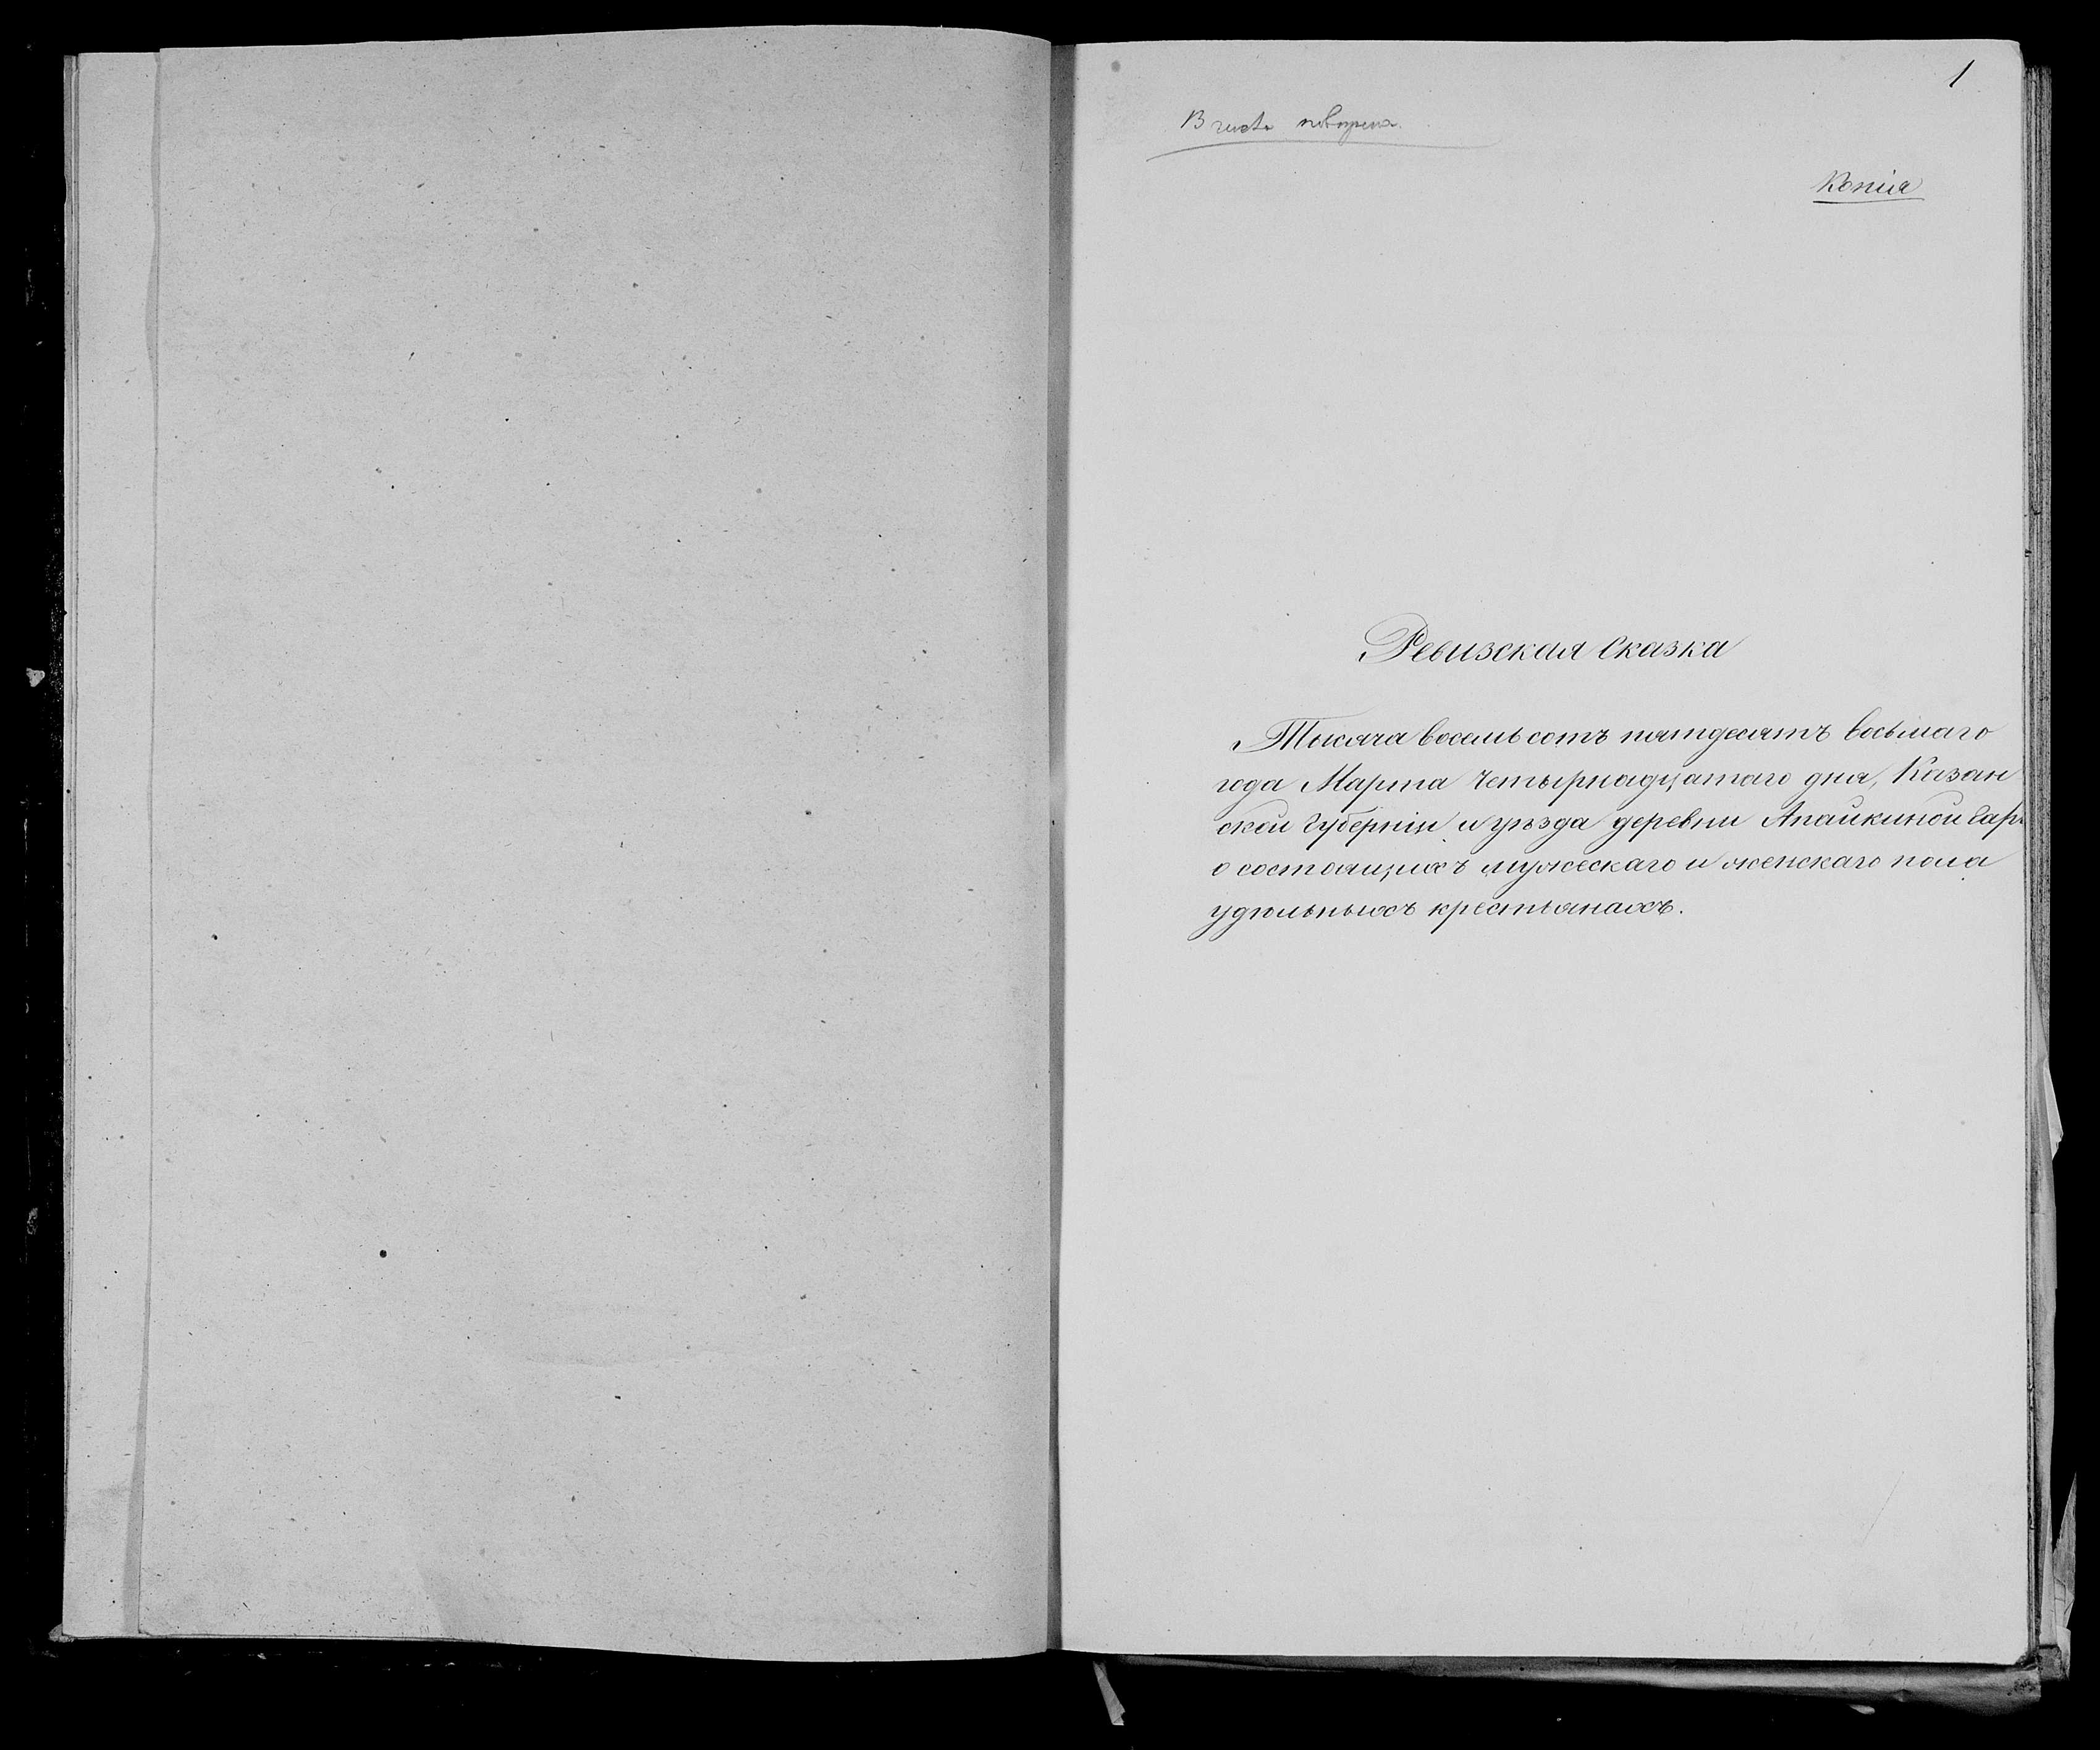 1
Копія
Ревизская сказка
Тысяча восемь сотъ пятдесятъ восьмаго
года Марта Четырнадцатаго дня, Казан
ской Губерніи и уѣзда деревни Апайкиной
о состоящихъ мужескаго и женскаго пола
удѣльныхъ крестьянахъ.